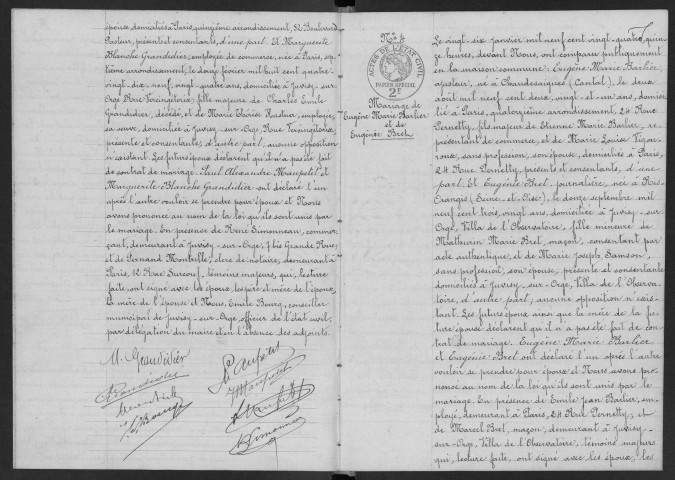 époux domiciliés à Paris, quinzième arrondissement, 52 Boulevard
Pasteur, présents et consentants, d'une part. Et Marguerite
Blanche Grandidier, employée de commerce, née à Paris, sep-
tième arrondissement, le douze février mil huit cent quatre
vingt-dix-neuf, vingt-quatre ans, domiciliée à Juvisy-sur-
Orge Rue Vercingétorix, fille majeure de Charles Emile
Grandidier, décédé, et de Marie employée,
sa veuve, domiciliée à Juvisy-sur-Orge, Rue Vercingétorix
présente et consentante, d'autre part, aucune opposition
n'existant. Les futurs époux déclarent qu'il n'a pas été fait
de contrat de mariage. Paul Alexandre Maupetit et
Marguerite Blanche Grandidier ont déclaré l'un
après l'autre vouloir se prendre pour époux et Nous
avons prononcé au nom de la loi qu'ils sont unis par
le mariage. En présence de René Simonneau, commer-
çant, demeurant à Juvisy-sur-Orge, 7 bis Grande Rue,
et de Fernand clerc de notaire, demeurant à
Paris, 12 Rue Surcouf, témoins majeurs, qui, lecture
faite, ont signé avec les époux, les père et mère de l'époux,
la mère de l'épouse et Nous, Emile Bourg, conseiller
municipal de Juvisy-sur-Orge, officier de l'état civil,
par délégation du maire et en l'absence des adjoints.
M. Grandidier
Maupetit
Grandidier
Maupetit
E. Bourg
Simonneau
N° 4
ACTES DE L'ÉTAT CIVIL
PAPIER SPÉCIAL
2F
Mariage de
Eugène Marie Barlier
et de
Eugénie Bret
Le vingt-six janvier mil neuf cent vingt-quatre, quin-
ze heures, devant Nous, ont comparu publiquement
en la maison commune : Eugène Marie Barlier,
ajusteur, né à Chaudesaigues (Cantal), le deux
août mil neuf cent deux, vingt-et-un ans, domici-
lié à Paris, quatorzième arrondissement, 24 Rue
Pernetty, fils majeur de Etienne Marie Barlier, re-
présentant de commerce, et de Marie Louise Vigou-
roux, sans profession, son épouse, domiciliés à Paris,
24 Rue Pernetty, présents et consentants, d'une
part. Et Eugénie Bret, journalière, née à Ris-
Orangis (Seine-et-Oise), le douze septembre mil
neuf cent trois, vingt ans, domiciliée à Juvisy-sur-
Orge, Villa de l'Observatoire, fille mineure de
Mathurin Marie Bret, maçon, consentant par
acte authentique, et de Marie Joseph Samson,
sans profession, son épouse, présente et consentante
domiciliés à Juvisy-sur-Orge, Villa de l'Observa-
toire, d'autre part, aucune opposition n'exis-
tant. Les futurs époux ainsi que la mère de la fu-
ture épouse déclarent qu'il n'a pas été fait de con-
trat de mariage. Eugène Marie Barlier
et Eugénie Bret ont déclaré l'un après l'autre
vouloir se prendre pour époux et Nous avons pro-
noncé au nom de la loi qu'ils sont unis par le
mariage. En présence de Emile Jean Barlier, em-
ployé, demeurant à Paris, 24 Rue Pernetty, et
de Marcel Bret, maçon, demeurant à Juvisy-
sur-Orge, Villa de l'Observatoire, témoins majeurs
qui, lecture faite, ont signé avec les époux, les